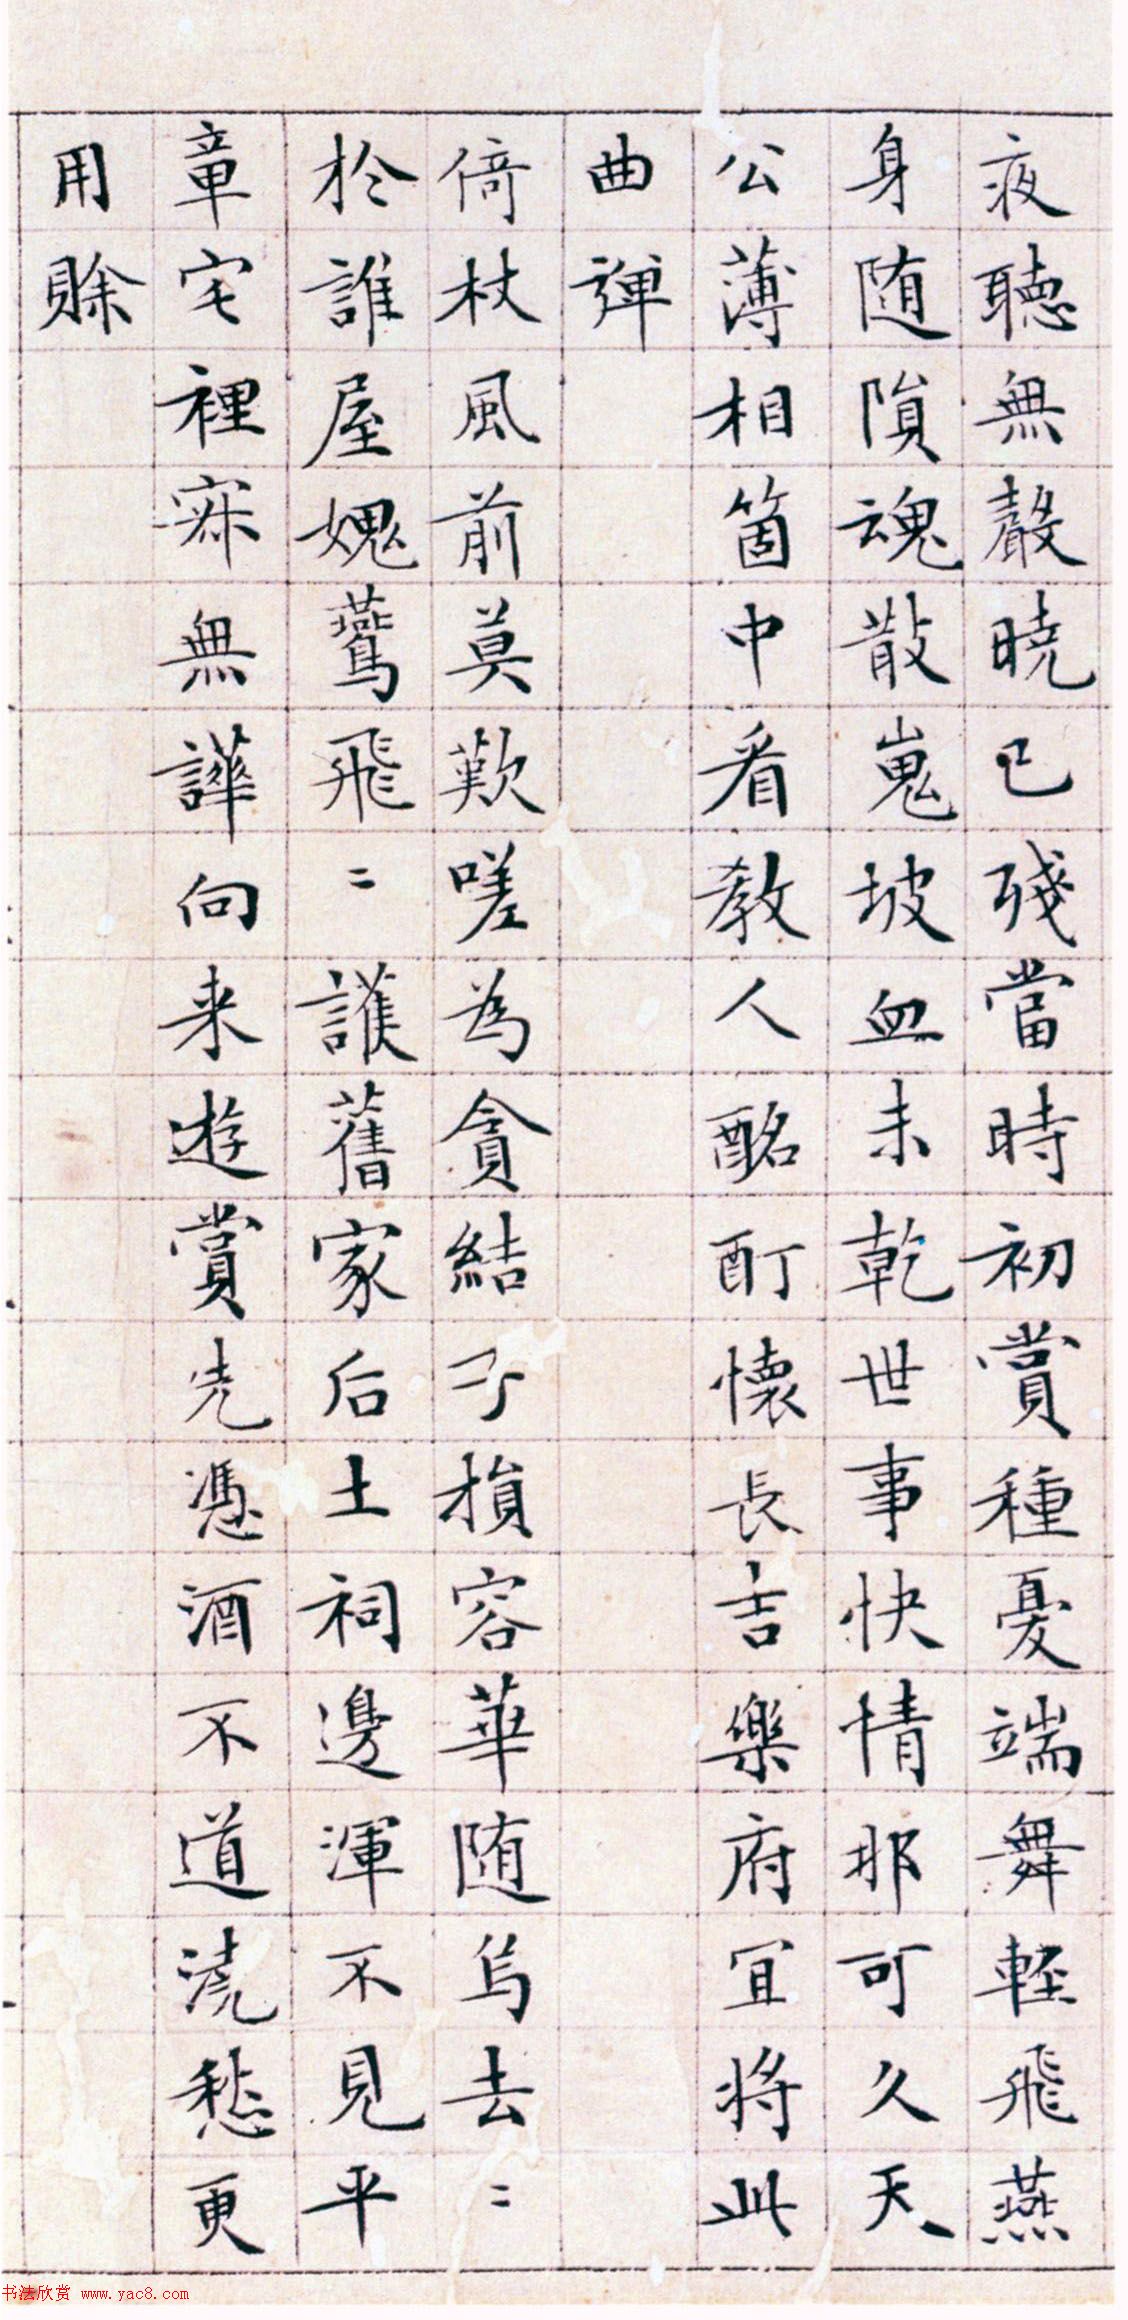 夜聽無聲曉已殘當時初賞種憂端舞輕飛燕
身随隕魂散嵬坡血未乾世事快情那可久天
公薄相箇中看教人酩酊懷長吉樂府冝將此
曲彈
倚杖風前莫歎嗟為貪結子損容華随烏去〻
於誰屋媿鷰飛〻護舊家后土祠邊渾不見平
章宅裡寐無譁向来遊賞先憑酒不道澆愁更
用賒
书法欣赏 www.yac8.com